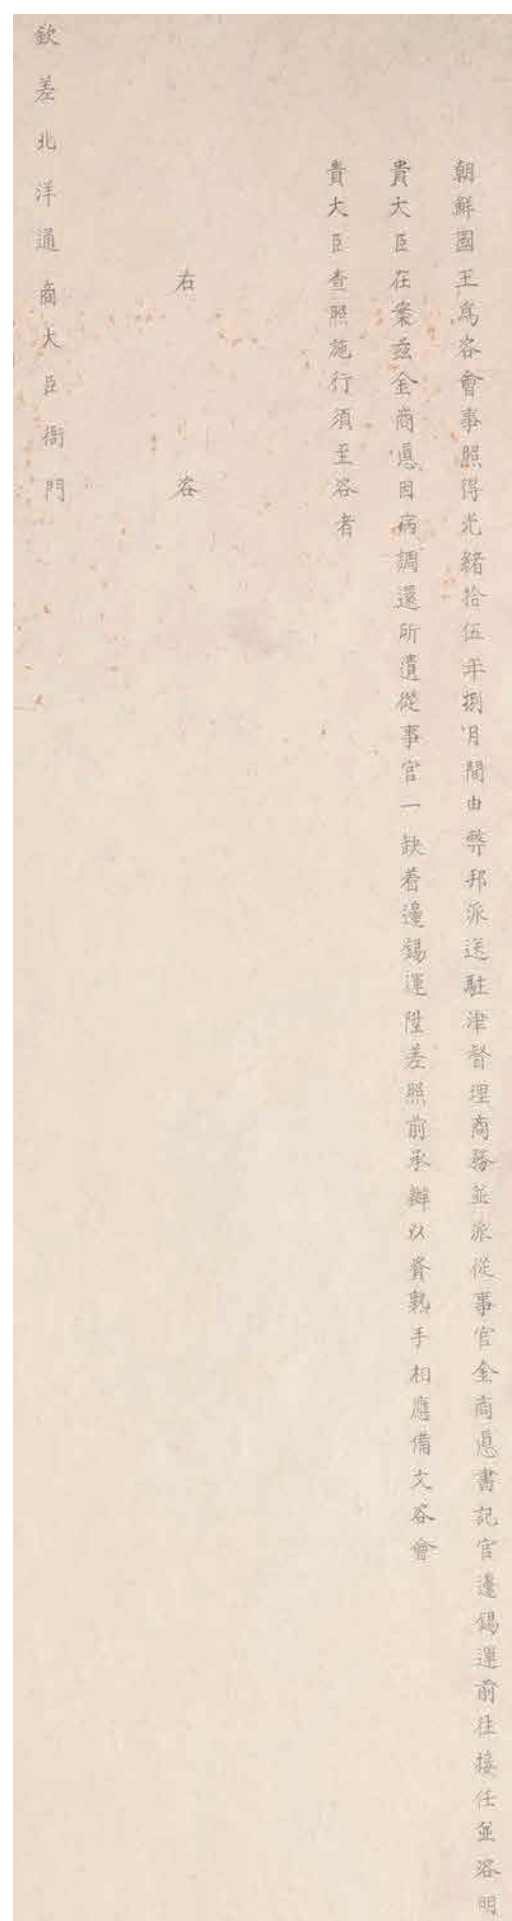 朝鮮國王爲咨會事照得光緖拾伍年捌月間由弊邦派送駐津督理商務並派從事官金商悳書記官邊錫運前往接任並咨明
貴大臣在案茲金商悳因病調還所遺從事官一缺着邊錫運陞差照前承辦以資熟手相應備文咨會
貴大臣查照施行須至咨者
右咨
欽差北洋通商大臣衙門